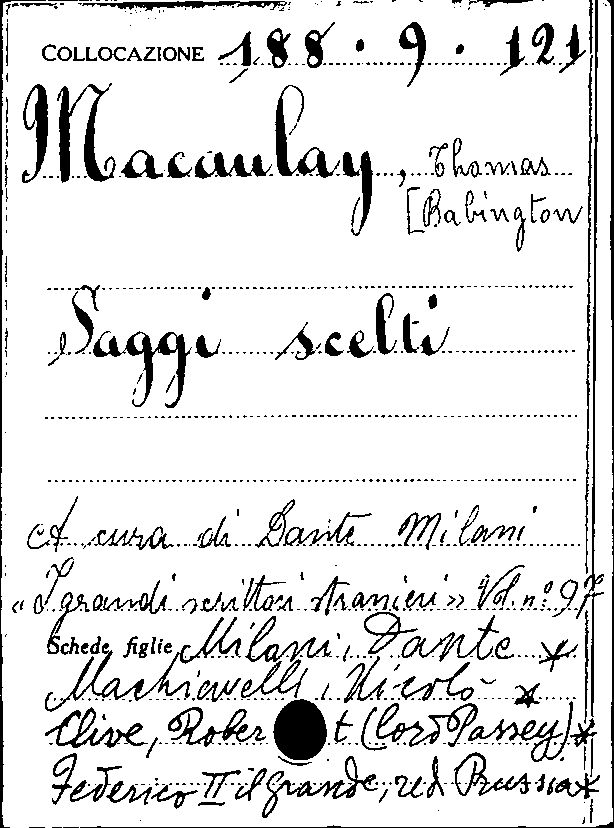 COLLOCAZIONE 188 · 9 · 121
Macaulay, Thomas
[Babington
Saggi scelti
A cura di Dante Milani
«I grandi scrittori stranieri» Vol. n° 97
Schede figlie Milani, Dante *
Machiavelli, Nicolò *
Clive, Robert (lord Passey) *
Federico II il grande, re d Prussia *